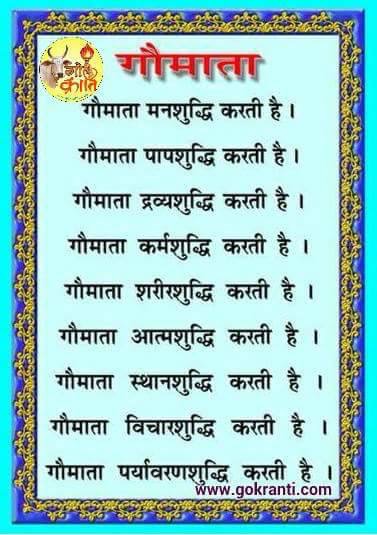 गौ क्रांति
गौमाता
गौमाता मनशुद्धि करती है ।
गौमाता पापशुद्धि करती है ।
गौमाता द्रव्यशुद्धि करती है ।
गौमाता कर्मशुद्धि करती है ।
गौमाता शरीरशुद्धि करती है ।
गौमाता आत्मशुद्धि करती है ।
गौमाता स्थानशुद्धि करती है ।
गौमाता विचारशुद्धि करती है ।
गौमाता पर्यावरणशुद्धि करती है ।
www.gokranti.com